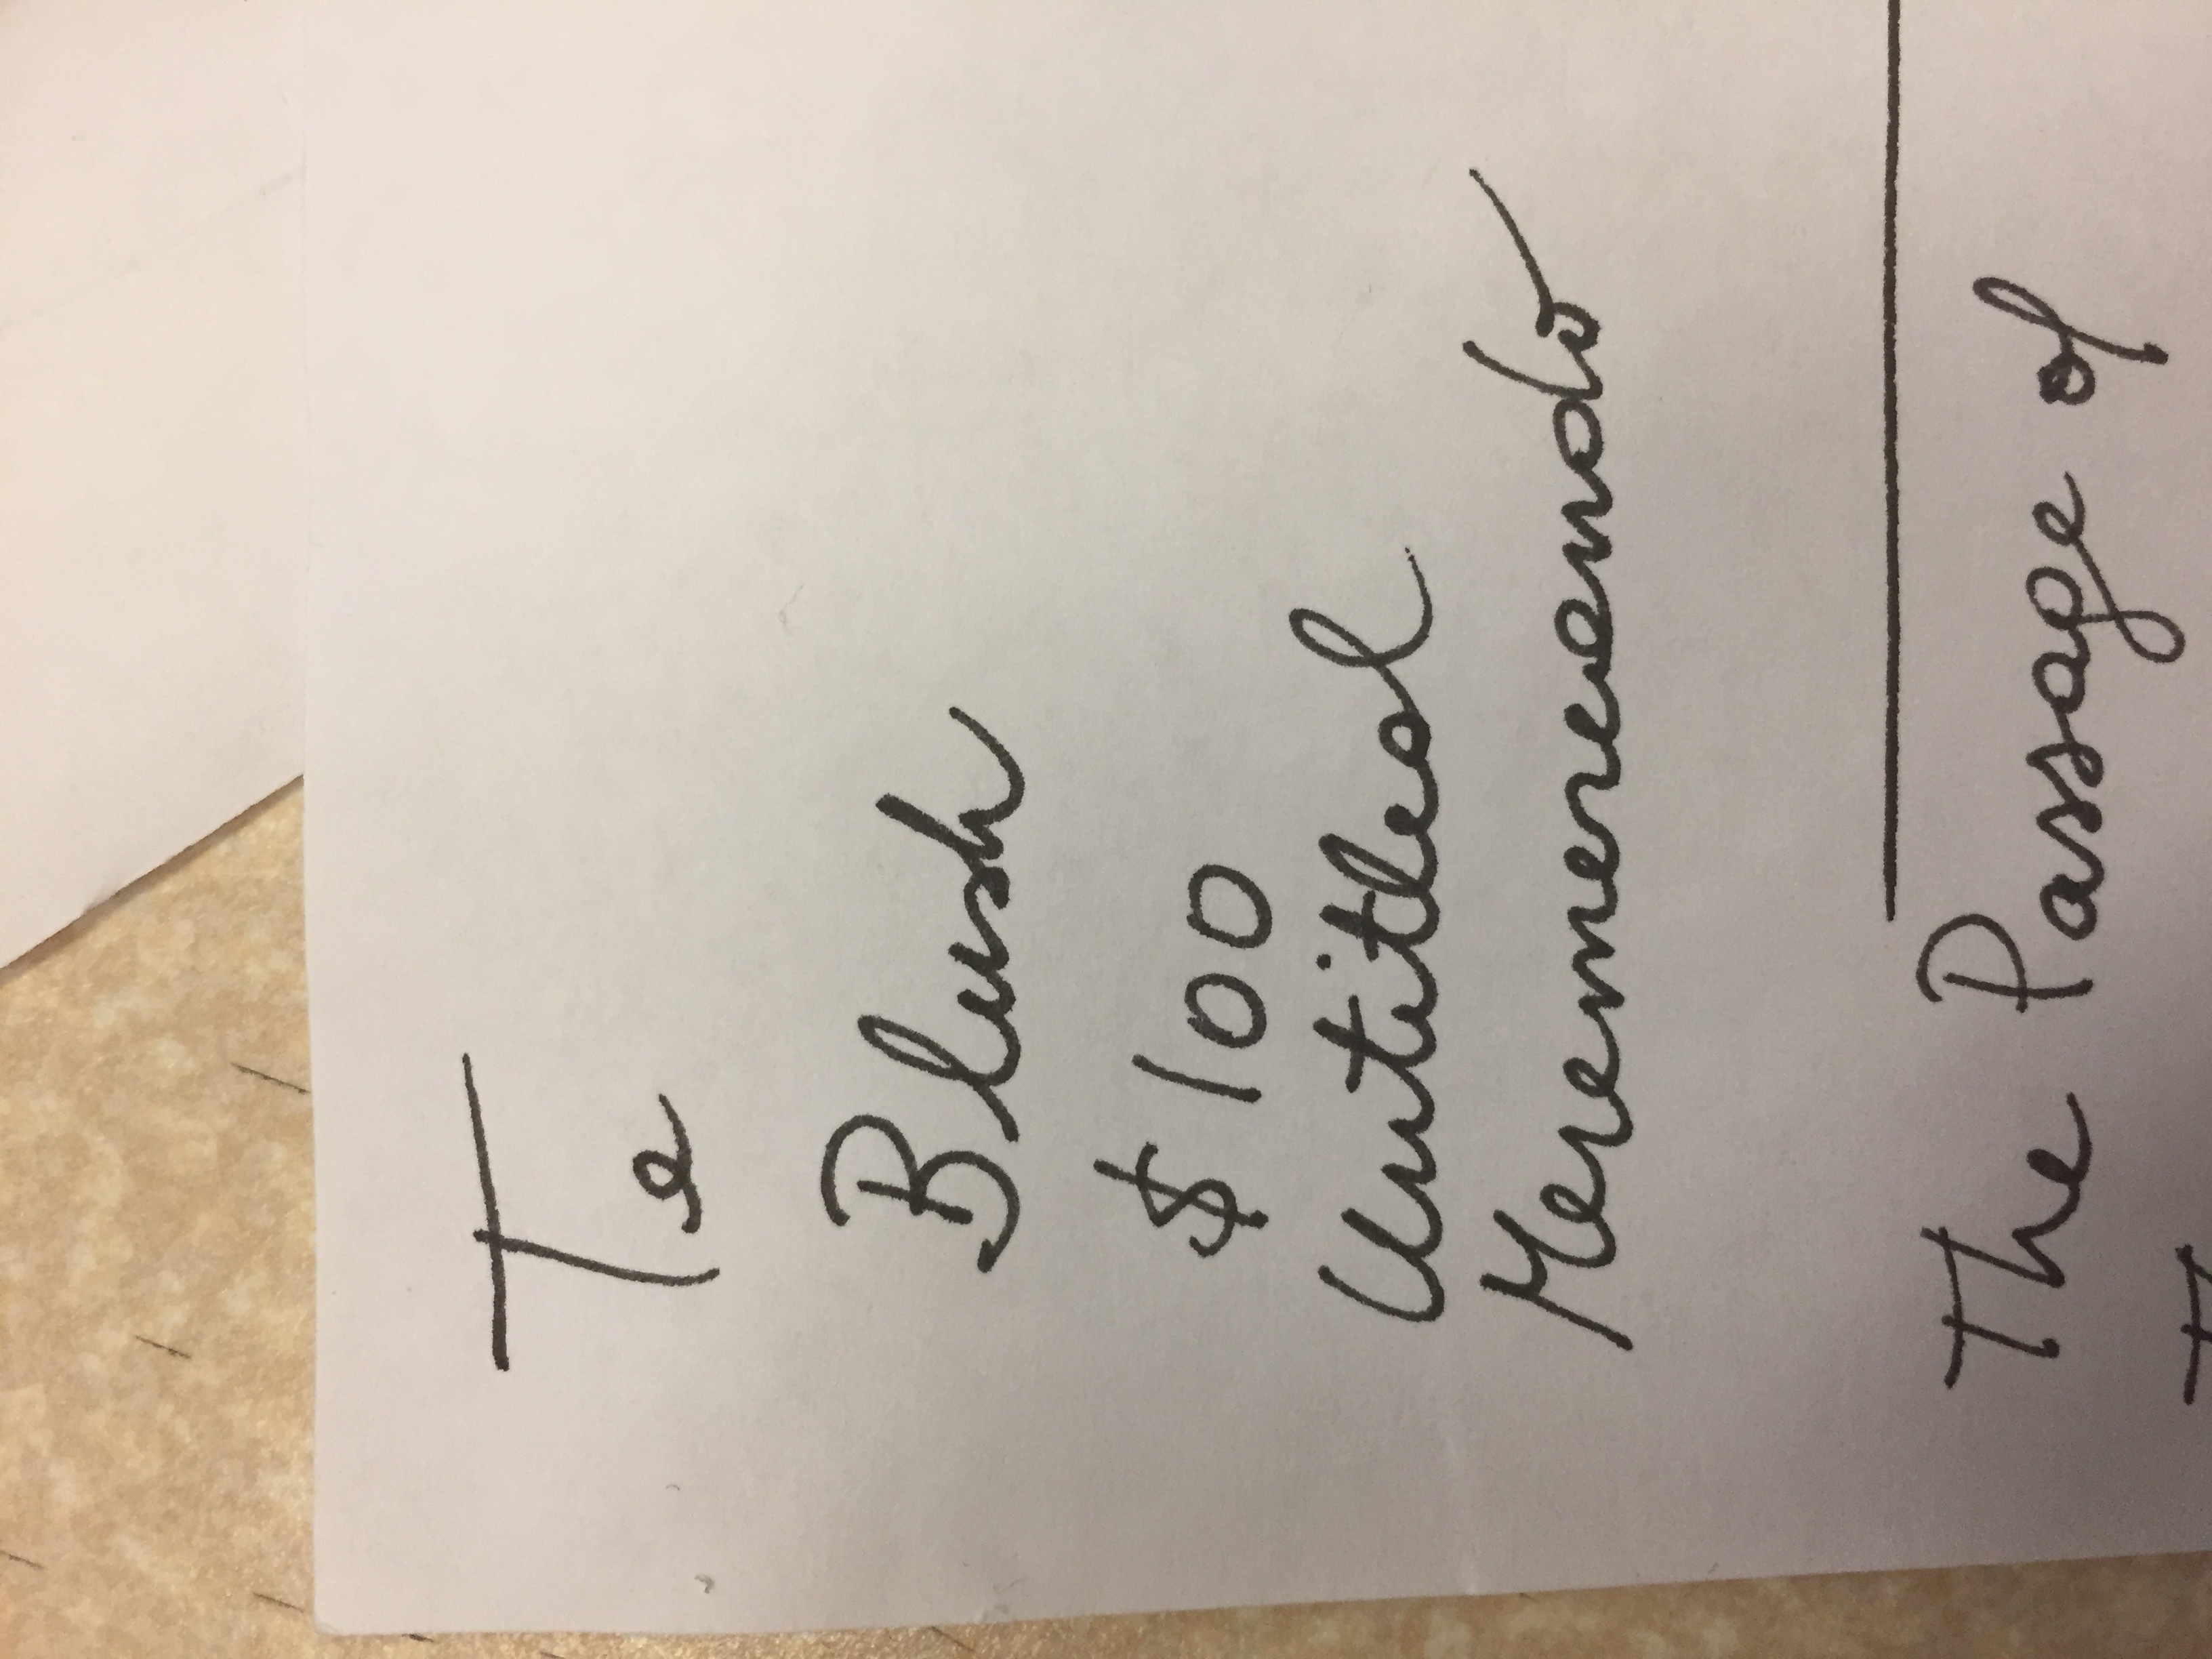 Te
Blush
$100
Untitled
Meremereando
The Passage of